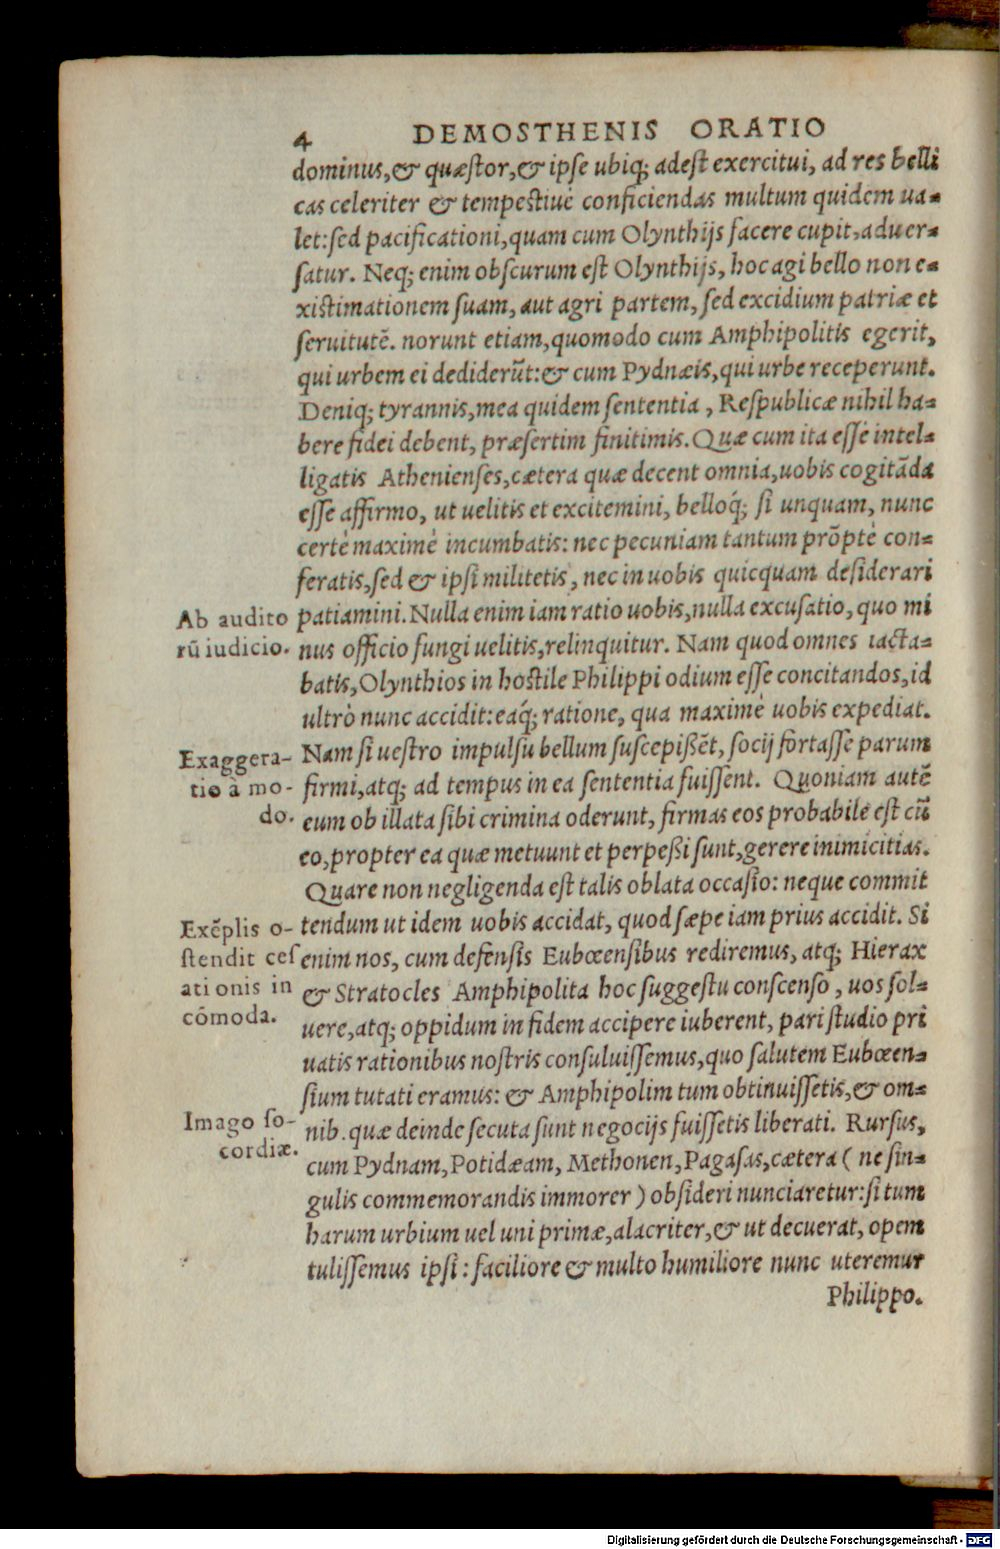 4 DEMOSTHENIS ORATIO
dominus,& quæstor,& ipse ubiq; adest exercitui, ad res belli
cas celeriter & tempestiuè conficiendas multum quidem ua-
let: sed pacificationi, quam cum Olynthijs facere cupit, aduer-
satur. Neq; enim obscurum est Olynthijs, hoc agi bello non e-
xistimationem suam, aut agri partem, sed excidium patriæ et
seruitutē. norunt etiam, quomodo cum Amphipolitis egerit,
qui urbem ei dediderūt: & cum Pydnæis, qui urbe receperunt.
Deniq; tyrannis, mea quidem sententia, Respublicæ nihil ha-
bere fidei debent, præsertim finitimis. Quæ cum ita esse intel-
ligatis Athenienses, cætera quæ decent omnia, uobis cogitāda
esse affirmo, ut uelitis et excitemini, belloq́; si unquam, nunc
certè maximè incumbatis: nec pecuniam tantum prōptè con-
feratis, sed & ipsi militetis, nec in uobis quicquam desiderari
Ab audito
rū iudicio.
patiamini. Nulla enim iam ratio uobis, nulla excusatio, quo mi
nus officio fungi uelitis, relinquitur. Nam quod omnes iacta-
batis, Olynthios in hostile Philippi odium esse concitandos, id
ultrò nunc accidit: eaq́; ratione, qua maximè uobis expediat.
Exaggera-
tio à mo-
do.
Nam si uestro impulsu bellum suscepißēt, socij fortasse parum
firmi, atq; ad tempus in ea sententia fuissent. Quoniam autē
eum ob illata sibi crimina oderunt, firmas eos probabile est cū
eo, propter ea quæ metuunt et perpeßi sunt, gerere inimicitias.
Quare non negligenda est talis oblata occasio: neque commit
Exēplis o-
stendit ces
ationis in
cōmoda.
tendum ut idem uobis accidat, quod sæpe iam prius accidit. Si
enim nos, cum defensis Eubœensibus rediremus, atq; Hierax
& Stratocles Amphipolita hoc suggestu conscenso, uos sol-
uere, atq; oppidum in fidem accipere iuberent, pari studio pri
uatis rationibus nostris consuluissemus, quo salutem Eubœen-
sium tutati eramus: & Amphipolim tum obtinuissetis, & om-
Imago so-
cordiæ.
nib. quæ deinde secuta sunt negocijs fuissetis liberati. Rursus,
cum Pydnam, Potidæam, Methonen, Pagasas, cætera ( ne sin-
gulis commemorandis immorer ) obsideri nunciaretur: si tum
harum urbium uel uni primæ, alacriter, & ut decuerat, opem
tulissemus ipsi: faciliore & multo humiliore nunc uteremur
Philippo.
Digitalisierung gefördert durch die Deutsche Forschungsgemeinschaft - DFG